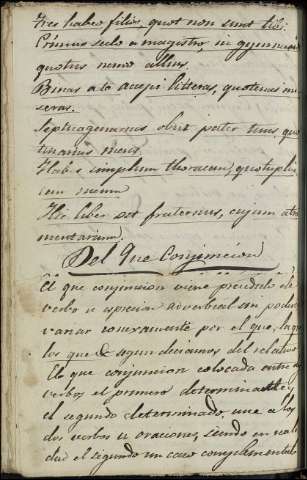 Tres habeo filios, quot non sunt tibi.
Primus sedo a magistro in gymnasio
quotus nemo alius.
Binas a te accepi litteras, quotenas mi
seras.
Septuagenarius obiit pater tuus, quo
tenarius meus.
Habes simplum thoracem, quotupli
cem nemo
Hic liber est fraternus, cujum atra
mentarium.
Del Que Conjuncion
El que conjuncion viene precedido de
verbo u espresion adverbial sin poder
variar como por el que, la que
los que &c segun deciamos del relativo
El que conjuncion colocada entre dos
verbos el primero determinante y
el segundo determinado, une a los
dos verbos u oraciones, siendo en reali
dad el segundo un caso complementado